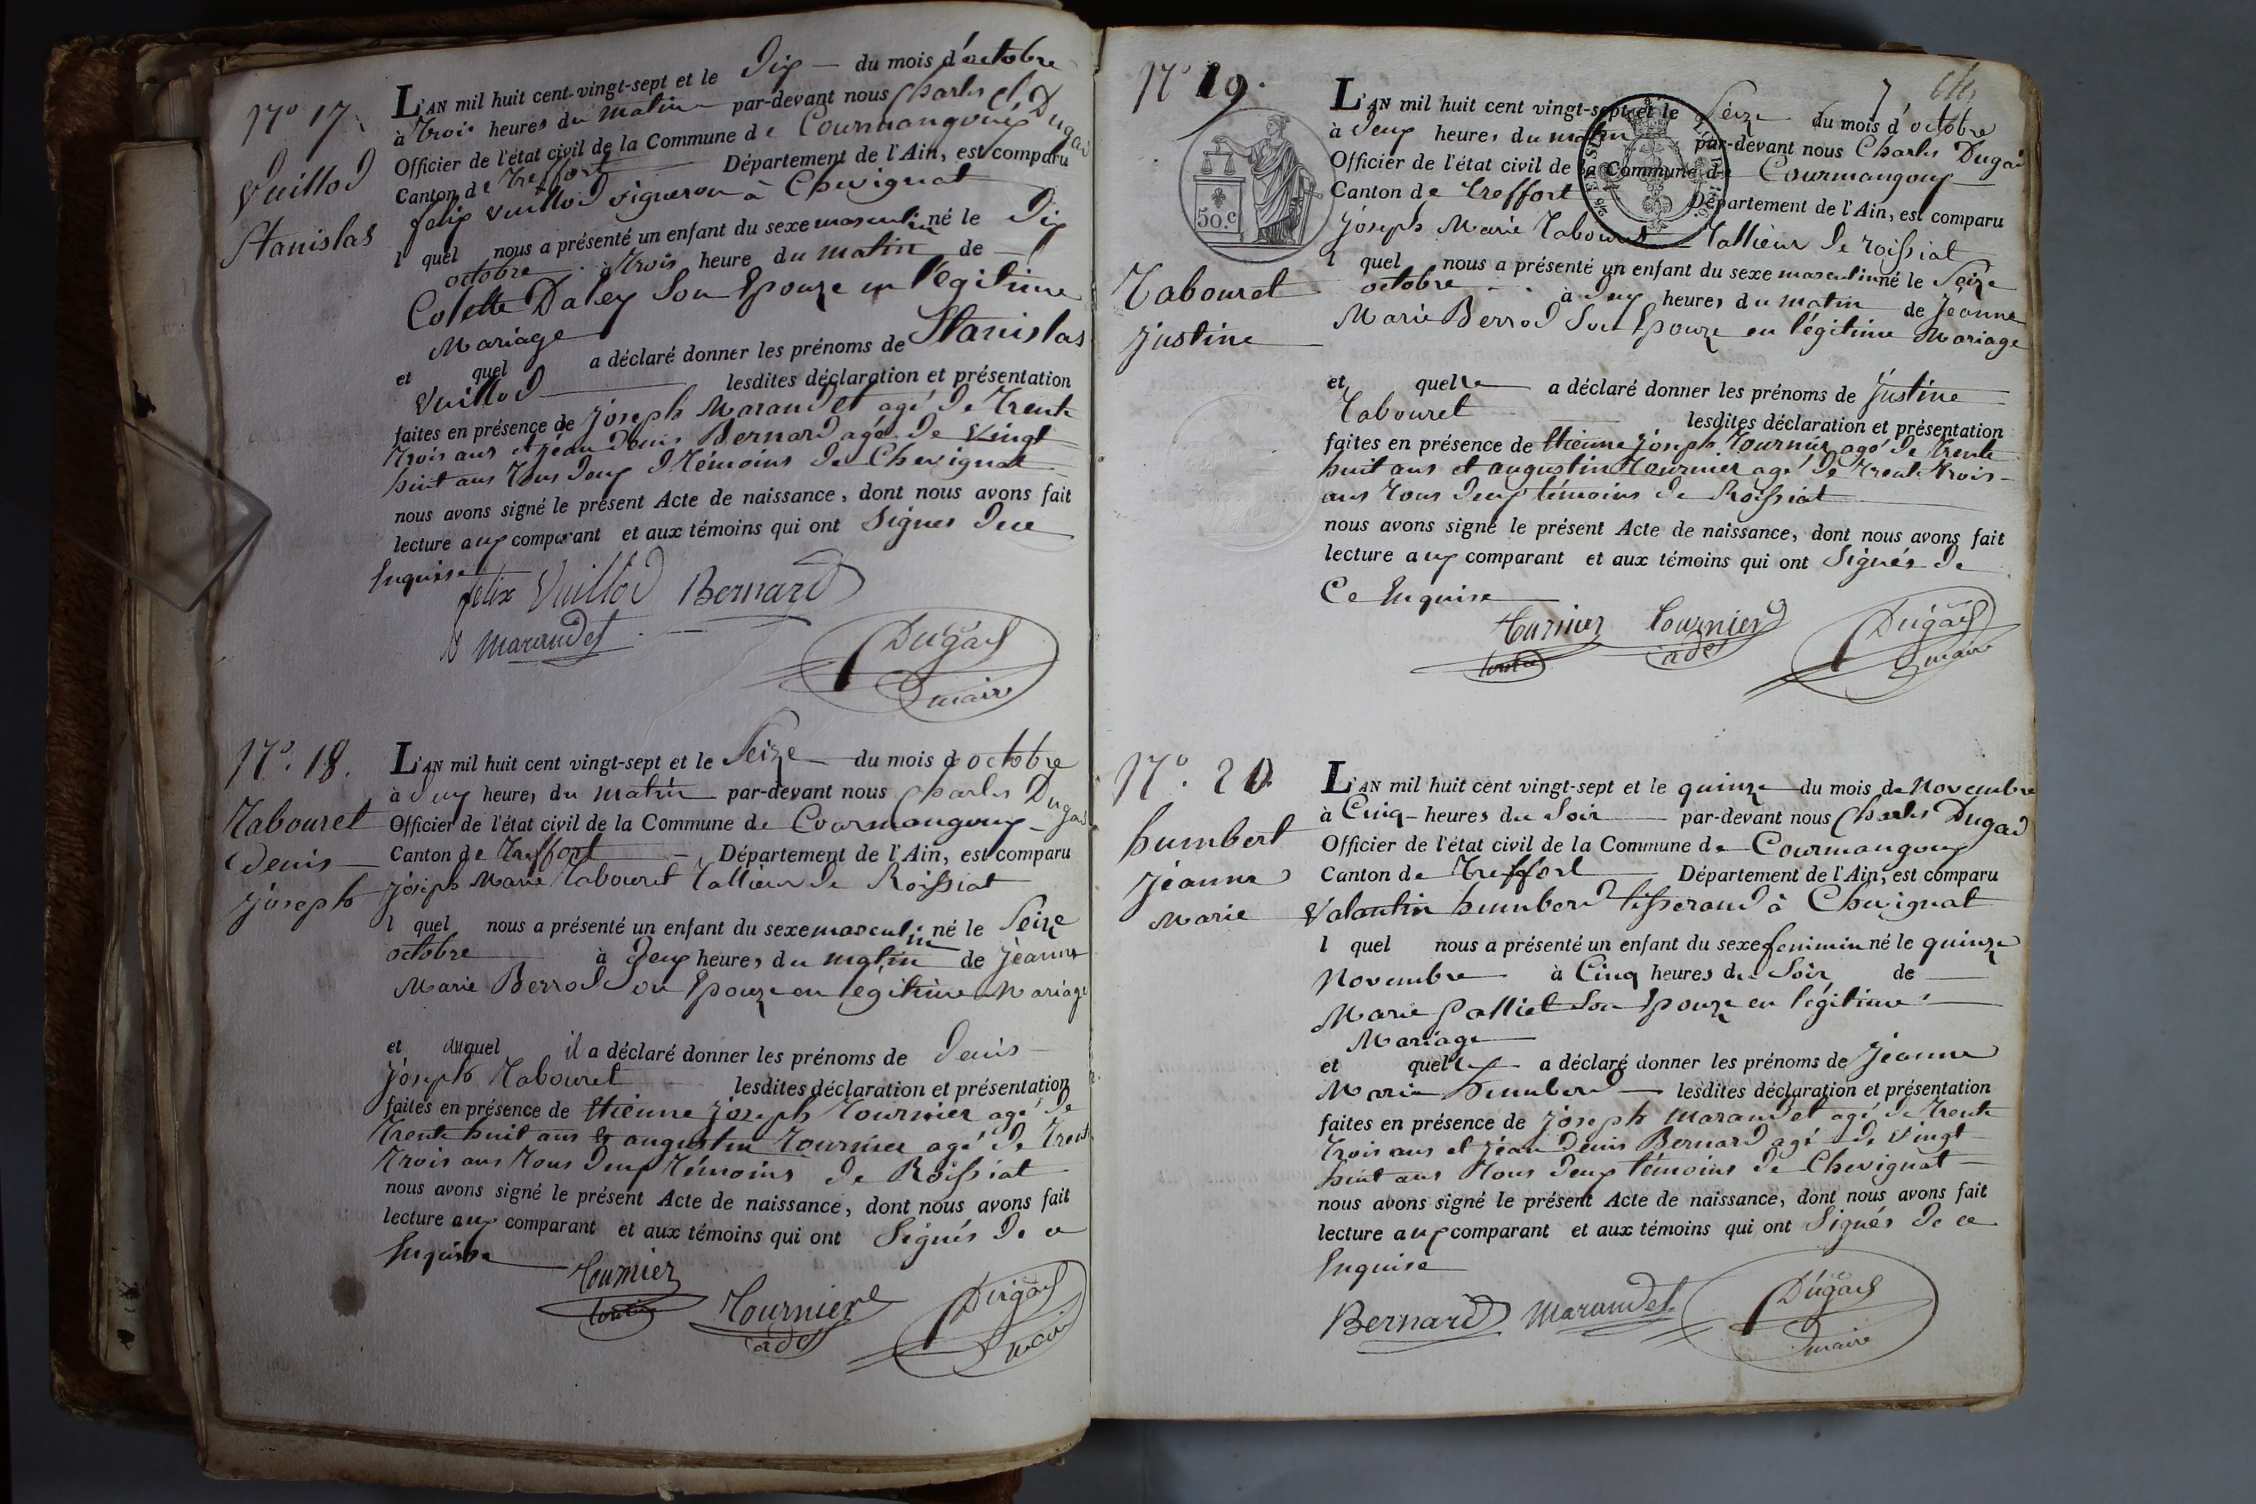 N° 17.
Vuillod
Stanislas
L'AN mil huit cent-vingt-sept et le Dix du mois d'octobre
à trois heures du matin par-devant nous Charles Dugad
Officier de l'état civil de la Commune de Courmangoux
Canton de Treffort Département de l'Ain, est comparu
felix Vuillod vigneron à Chevignat
l quel nous a présenté un enfant du sexe masculin né le Dix
octobre à trois heure du matin de
Colette Daley Son Epouze en légitime
Mariage
et quel a déclaré donner les prénoms de Stanislas
Vuillod lesdites déclaration et présentation
faites en présence de joseph Marandet agé de trente
trois ans et jéan denis Bernard agé de Vingt
huit ans tous deux témoins de Chevignat
nous avons signé le présent Acte de naissance, dont nous avons fait
lecture aux comparant et aux témoins qui ont Signés de ce
Enquise
felix Vuillod Bernard
Marandet
Dugad
maire
N°. 18.
Tabouret
denis
joseph
L'AN mil huit cent vingt-sept et le Seize du mois d octobre
à deux heures du matin par-devant nous Charles Dugad
Officier de l'état civil de la Commune de Courmangoux
Canton de Treffort Département de l'Ain, est comparu
joseph Marie Tabouret tallieur de Roissiat
l quel nous a présenté un enfant du sexe masculin né le Seize
octobre à deux heures du matin de jéanne
Marie Berrod Son Epouze en légitime Mariage
et duquel il a déclaré donner les prénoms de denis
joseph Tabouret lesdites déclaration et présentation
faites en présence de Etienne joseph Tournier agé de
trente huit ans et augustin tournier agé de trent
trois ans tous deux témoins de Roissiat
nous avons signé le présent Acte de naissance, dont nous avons fait
lecture aux comparant et aux témoins qui ont Signés de ce
Enquise
Tournier
Tournier
adj
Dugad
maire
N° 19.
7
50.c
Tabouret
justine
L'AN mil huit cent vingt-sept et le Séize du mois d'octobre
à deux heures du matin par-devant nous Charles Dugad
Officier de l'état civil de la Commune de Courmangoux
Canton de treffort Département de l'Ain, est comparu
joseph Marie Tabouret tallieur de roissiat
l quel nous a présenté un enfant du sexe masculin né le Seize
octobre à deux heures du matin de jéanne
Marie Berrod Son Epouze en légitime Mariage
et quelle a déclaré donner les prénoms de justine
Tabouret lesdites déclaration et présentation
faites en présence de Etienne joseph Tournier agé de trente
huit ans et augustin Tournier agé de trente trois
ans tous deux témoins de Roissiat
nous avons signé le présent Acte de naissance, dont nous avons fait
lecture aux comparant et aux témoins qui ont Signés de
Ce Enquise
Tournier Tournier
adj
Dugad
maire
N°. 20
humbert
jéanne
Marie
L'AN mil huit cent vingt-sept et le quinze du mois de Novembre
à Cinq heures du Soir par-devant nous Charles Dugad
Officier de l'état civil de la Commune de Courmangoux
Canton de Treffort Département de l'Ain, est comparu
Valantin humberd tisserand à Chevignat
l quel nous a présenté un enfant du sexe feminin né le quinze
Novembre à Cinq heures du Soir de
Marie palliet Son Epouze en légitime
Mariage
et quelle a déclaré donner les prénoms de jéanne
Marie humberd lesdites déclaration et présentation
faites en présence de joseph Marandet agé de trente
trois ans et jéan denis Bernard agé de Vingt
huit ans tous deux témoins de Chevignat
nous avons signé le présent Acte de naissance, dont nous avons fait
lecture aux comparant et aux témoins qui ont Signés de ce
Enquise
Bernard Marandet
Dugad
maire